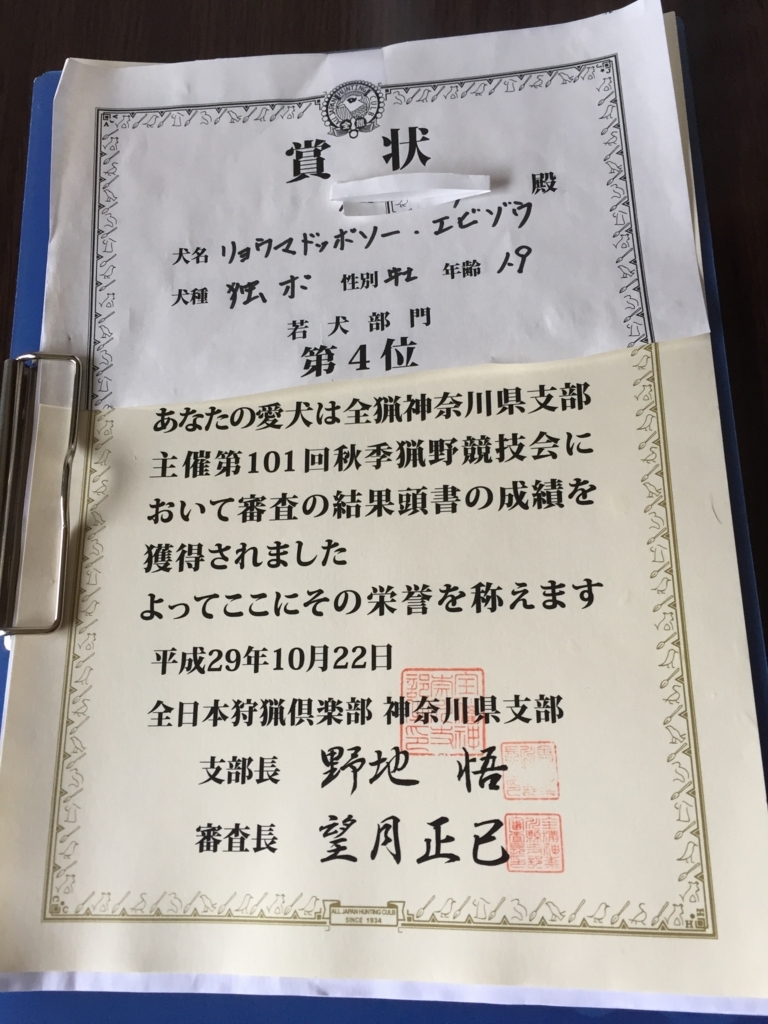 賞 状
殿
犬名 リョウマドッボソー・エビゾウ
犬種 独ポ 性別 牡 年齢 1.9
若犬部門
第4位
あなたの愛犬は全猟神奈川県支部
主催第101回秋季猟野競技会に
おいて審査の結果頭書の成績を
獲得されました
よってここにその栄誉を称えます
平成29年10月22日
全日本狩猟倶楽部 神奈川県支部
支部長 野地 悟
審査長 望月正己
ALL JAPAN HUNTING CULB
SINCE 1934